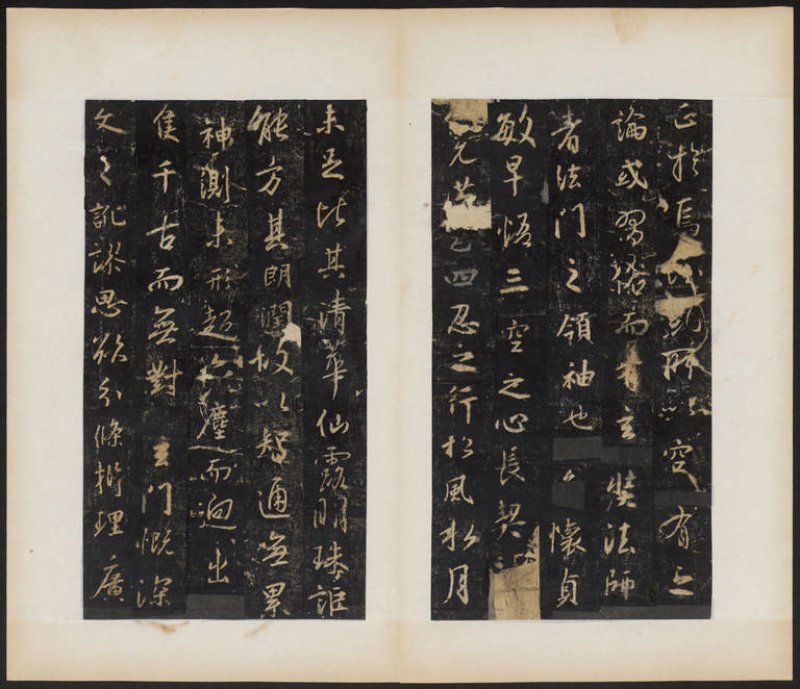 正於焉所以空有之
論或習俗而有玄奘法師
者法門之領袖也幼懷貞
敏早悟三空之心長契
先苞四忍之行松風水月
未足比其清華仙露明珠詎
能方其朗潤故以智通無累
神測未形超六塵而迥出
隻千古而無對玄門慨深
文之訛謬思欲分條析理廣